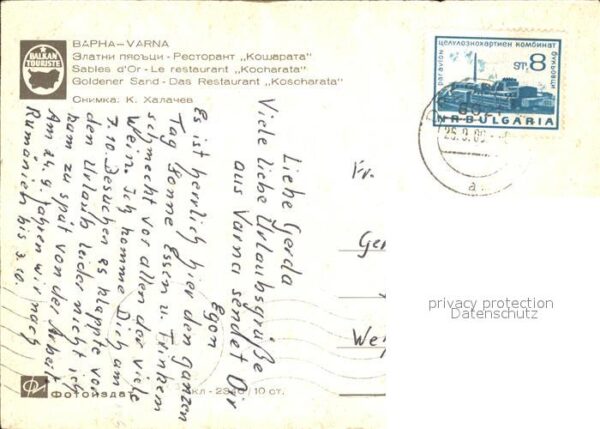 BALKAN
TOURISTE
ВАРНА – VARNA
Златни пясъци - Ресторант „Кошарата"
Sables d'Or - Le restaurant „Kocharata"
Goldener Sand - Das Restaurant „Koscharata"
Снимка: К. Халачев
par avion
целулознохартиен комбинат
бульовци
ST. 8
NR BULGARIA
Liebe Gerda
Viele liebe Urlaubsgrüße
aus Varna sendet Dir
Egon
Es ist herrlich hier den ganzen
Tag Sonne Essen u. Trinken
schmeckt vor allen der viele
Wein. Ich komme Dich am
7.10. Besuchen es klappte vor
den Urlaub leider nicht ich
kam zu spät von der Arbeit
Am 24.9. fahren wir nach
Rumänien bis 3.10.
Fr.
Ger
We
privacy protection
Datenschutz
Фотоиздат
кл - 2340 / 10 ст.